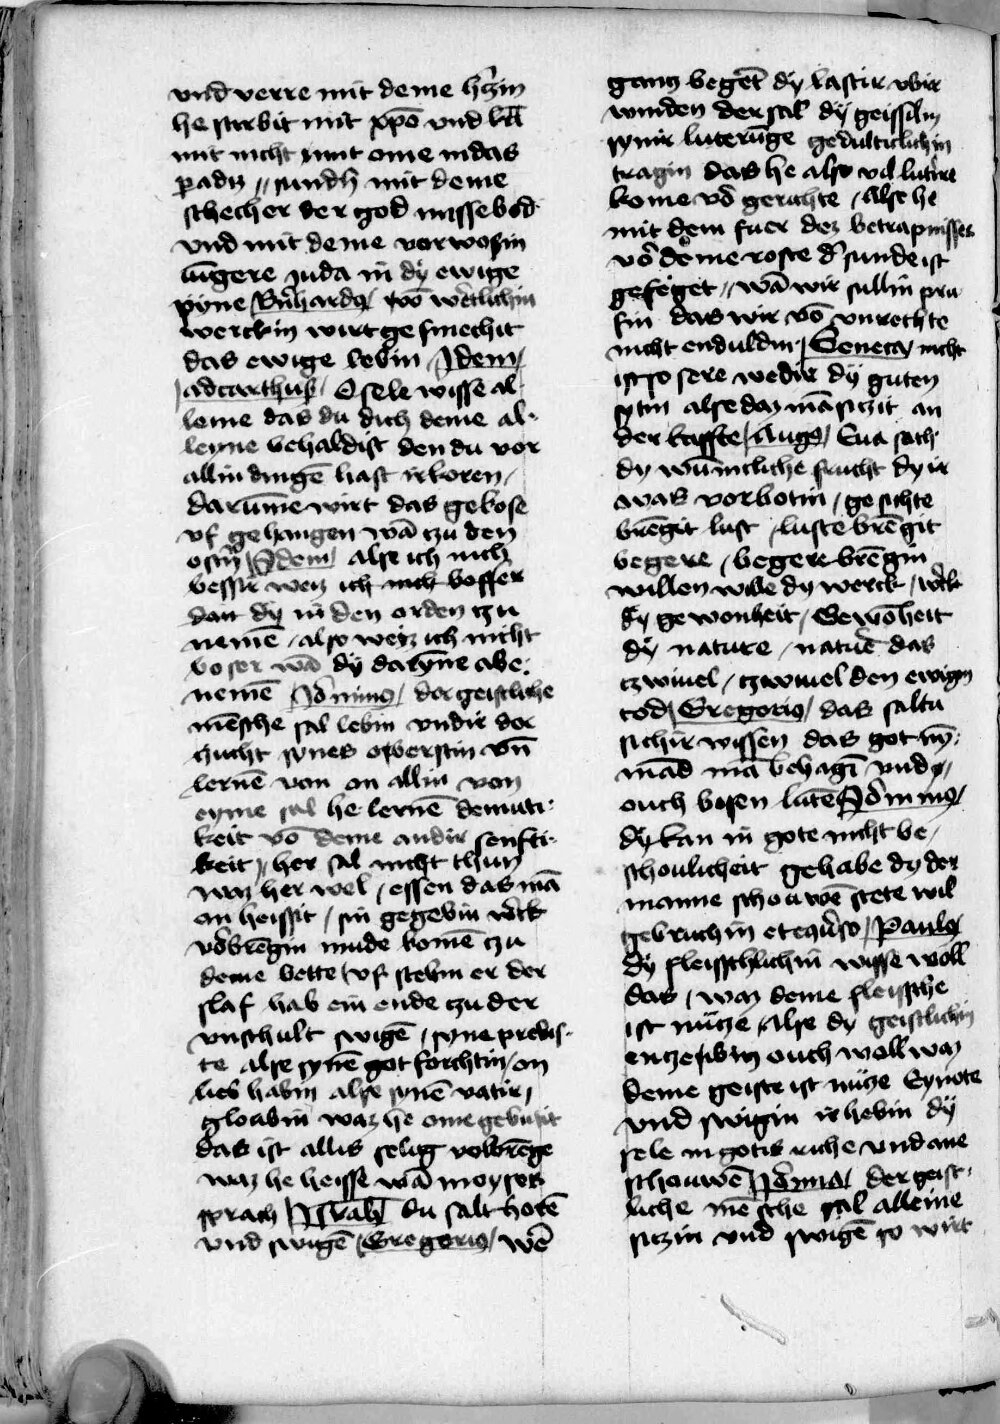 vnd verre mit deme hʼczin
he stirbit mit xpō vnd lid
mit nicht mit ome in das
padiz // sundʼn mit deme
schecher der god missebod
vnd mit deme vorwosin
iūngere juda in dy ewige
pyne Bʼnhardꝰ / vō wʼctlichin
werckin wirt gesmechit
das ewige lebin / Idem /
ad carthuß / O sele wisse al
leine das du dich deme al-
leyne behaldist den du vor
allin dingē hast irkoren /
darūme wirt das gekose
vf gehangen wā czu den
ostʼn / Idem / alse ich nich
bessir weiz ich nich bosser
dan dy in den orden czu
nemē / also weiz ich nicht
boser wā dy darȳne abe-
nemē / Jʼonimꝰ / der geistliche
mēsche sal lebin vndir der
czucht synes obʼerstin vn̄
lernē von on allin von
eyme sal he lernē demuti-
keit vō deme andir senfti-
keit / her sal nicht thun
waz her wel / essen das mā
on heissit / sin gegebin wʼck
vʼobrēgin mude komē czu
deme bette / vf stehin er der
slaf hab ein ende czu der
vnschult swigē / syne prelis-
te alse synē got forchtin / on
lieb habin alse synē vatir /
gloubin waz he ome gebutit
das ist allis selig volbrēge
waz he heisse wā moyses
sprach / Israhel / du salt horē
vnd swigē / Gregoriꝰ / wē
gancz begēt dy lastir wir
winden der sal dy geissiln
synir luterūge gedulticlichin
tragin das he also vil lutʼire
kome vō gerichte / Alse he
mit dem fuer dez betrapnisses
vō deme roste dʼ sunde ist
gefeget // wā wir sullin pru
fin das wir vō vnrechte
nicht enduldin / Seneca / nicht
ist so sere wedir dy guten
sytin alse daz mā siczit an
der kaffte / Augꝰ / Eua sach
dy wūnicliche frucht dy ir
was vorbotin / gesichte
brēgit lust / luste brēgit
begere / begere brēgin
willen wille dy werck / wʼck
dy gewonheit / Gewōheit
dy nature / naturē das
czwiuel / czwiuel den ewigin
tod / Gregoriꝰ / das saltu
sichir wissen das got ny-
mād mā behagī vnd /
ouch bosen lutē / Jʼonimꝰ /
dy kan in gote nicht be /
schoulicheit gehabe dy der
manne schouwē stete wil
gebruchin et eqūso / Paulꝰ
dy fleisschlichin wisse woll
das / waz deme fleissche
ist nucze / alse dy geistlichin
enczebin ouch woll waz
deme geiste ist nucze Eynote
vnd swigin irhebin dy
sele in gotis riche vnd ane
schouwē / Jʼonimꝰ / der geist-
liche mēsche sal alleine
siczin vnd swigē so wirt